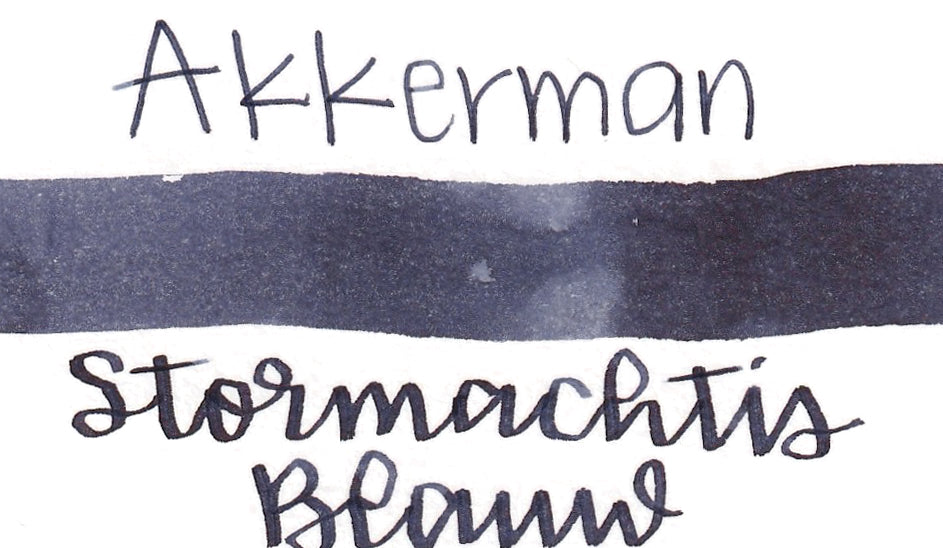 Akkerman
Stormachtis
Blauw